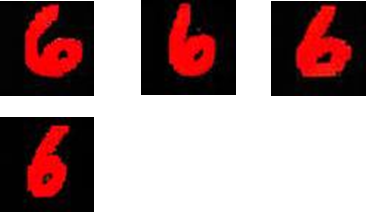 6 6 6
6